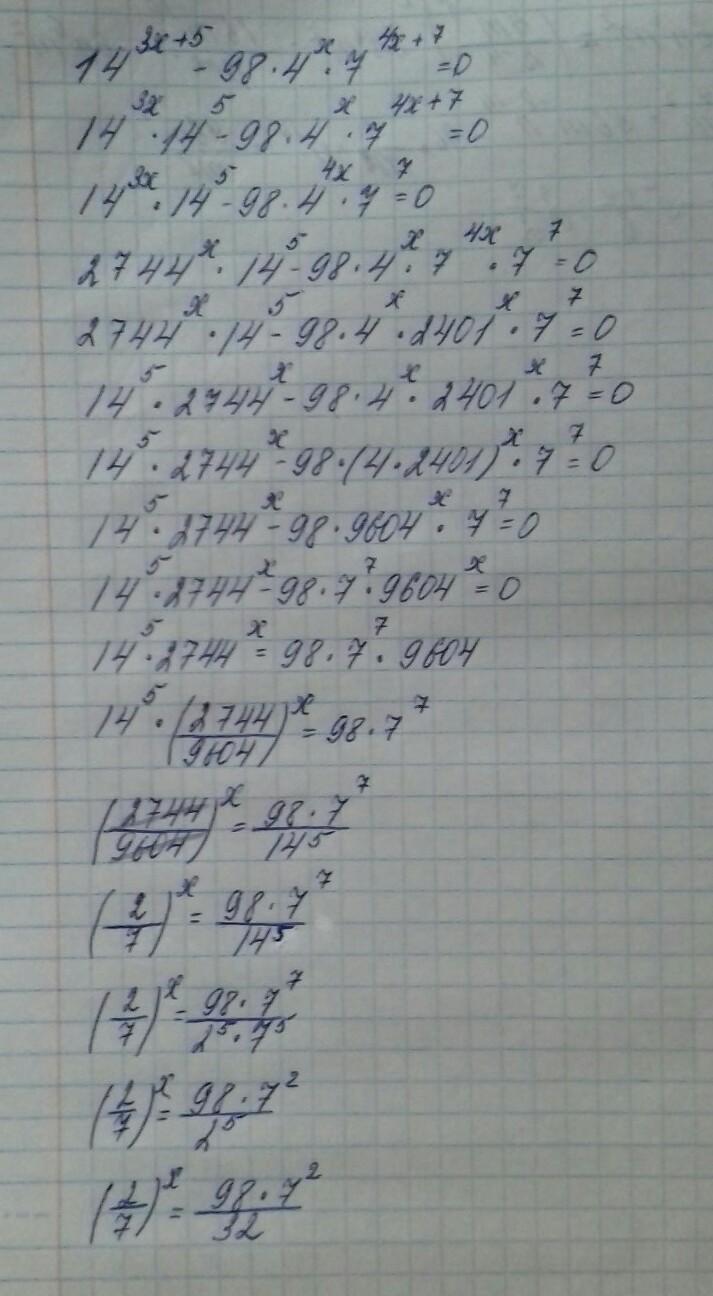 14^(3x+5) - 98·4^x·7^(4x+7) = 0
14^(3x)·14^5 - 98·4^x·7^(4x+7) = 0
14^(3x)·14^5 - 98·4^(4x)·7^7 = 0
2744^x·14^5 - 98·4^x·7^(4x)·7^7 = 0
2744^x·14^5 - 98·4^x·2401^x·7^7 = 0
14^5·2744^x - 98·4^x·2401^x·7^7 = 0
14^5·2744^x - 98·(4·2401)^x·7^7 = 0
14^5·2744^x - 98·9604^x·7^7 = 0
14^5·2744^x - 98·7^7·9604^x = 0
14^5·2744^x = 98·7^7·9604
14^5·(2744/9604)^x = 98·7^7
(2744/9604)^x = (98·7^7)/(14^5)
(2/7)^x = (98·7^7)/(14^5)
(2/7)^x = (98·7^7)/(2^5·7^5)
(2/7)^x = (98·7^2)/(2^5)
(2/7)^x = (98·7^2)/(32)